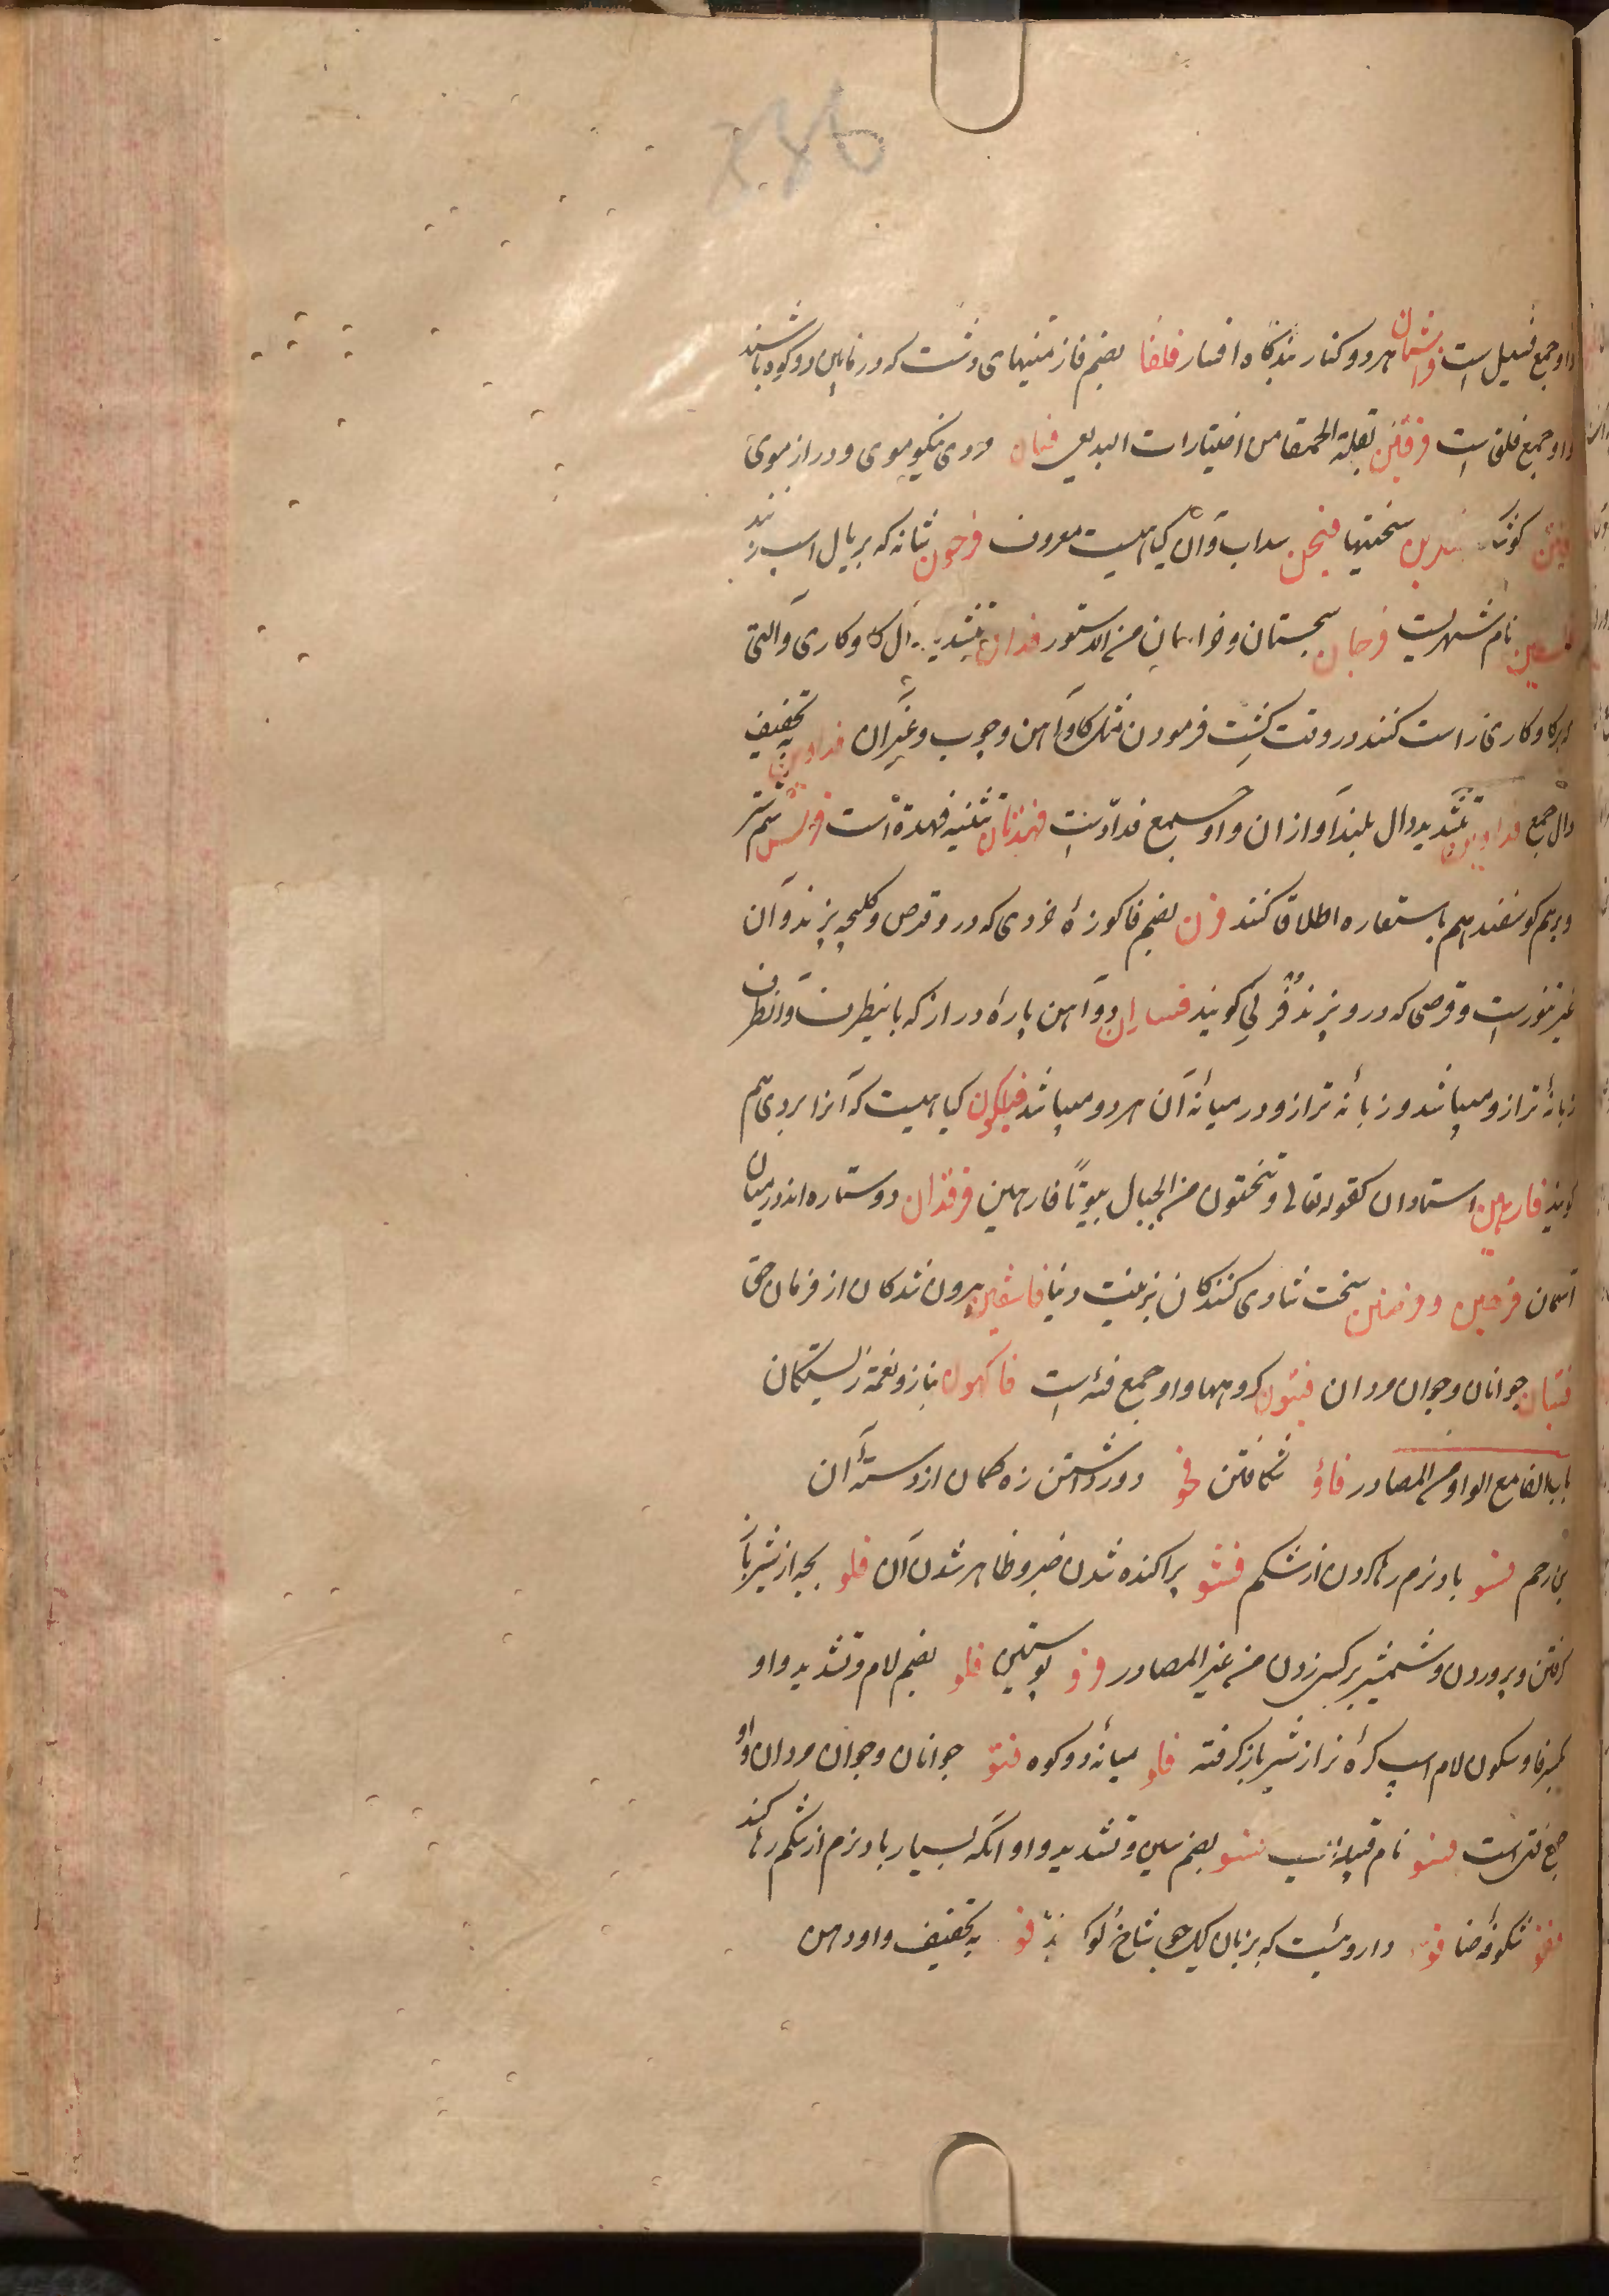 و او جمع فصیل است فراشتان هر دو کنار بندگاه افسار فلقان بضم فا زمینهای دشت که در مابین دو کوه باشند
و او جمع فلق است فرفین بقلة الحمقا من اختیارات البدیعی فینان مردی نیکو موی و دراز موی
فدن کوشک سختیها فیجن سداب و آن گیاهیست معروف فرجون شانه که بر یال اسپ زنند
نام شهریست فرجان سجستان و خراسان من الدستور فدان بتشدید دال گاو کاری و آلتی
که گاو کاری را راست کنند در وقت کشت فرمودن مثل گاوآهن و چوب و غیر آن فدادین بتخفیف
دال جمع فدادین بتشدید دال بلند آوازان و او جمع فدادست فهدتان تثنیه فهدة است فرسن سم شتر
و بر سم گوسفند هم باستعاره اطلاق کنند فرن بضم فا کوزهٔ خردی که در و قرص و کلیچه پزند و آن
غیر تنورست و قرصی که در و پزند فرنی گویند فیاران دو آهن پارهٔ دراز که باینطرف و آنطرف
زبانهٔ ترازو میباشد و زبانهٔ ترازو در میانهٔ آن هر دو میباشد فیلکون گیاهیست که آنرا بردی هم
گویند فارهین استادان کقوله تعالی و تنحتون من الجبال بیوتا فارهین فرقدان دو ستاره اند در میان
آسمان فرحین و فرحین سخت شادی کنندگان بزینت دنیا فاسقین بیرون شدگان از فرمان حق
فتیان جوانان و جوان مردان فئون گروهها و او جمع فئه است فاکهون بناز و نعمة زیستگان
باب الفا مع الواو من المصادر فأو شکافتن فجو دور داشتن زه کمان از دستهٔ آن
فسو باد نرم رها کردن از شکم فشو پراکنده شدن خبر و ظاهر شدن آن فلو بچه از شیر باز
گرفتن و پروردن و شمشیر بر کسی زدن من غیر المصادر فرو پوستین فلو بضم لام و تشدید واو
بکسر فا و سکون لام اسپ کرهٔ نر از شیر باز گرفته فأو میانهٔ دو کوه فتو جوانان و جوان مردان و او
جمع فتی است فسو نام قبیله ایست فسو بضم سین و تشدید واو آنکه بسیار باد نرم از شکم رها کند
فغو شکوفهٔ حنا فو داروئیست که بزبان یک چوب شاخ گویند فو به تخفیف واو دهن